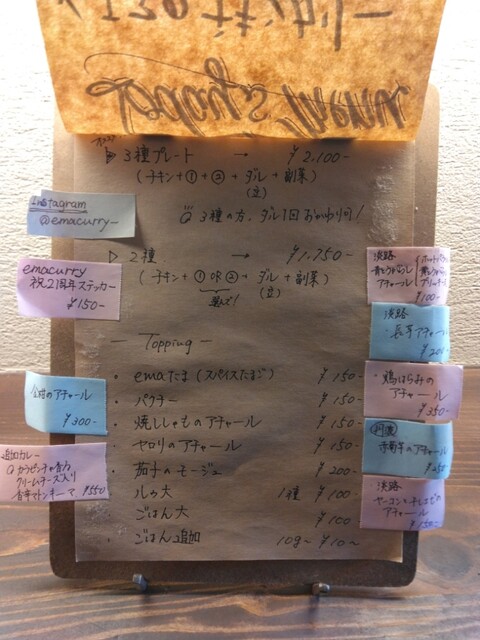 Today's Menu
3種プレート → ¥2.100-
(チキン+①+②+ダル+副菜)
(豆)
3種の方、ダル1回おかわり可!
Instagram
@emacurry_
▷ 2種 → ¥1.750-
(チキン+①OR②+ダル+副菜)
選んで! (豆)
emacurry
祝2周年ステッカー
¥150-
淡路
アチャール
¥100-
淡路
・長芋アチャール
¥200-
- Topping -
・emaたま(スパイスたまご) ¥150-
・パクチー ¥150-
・焼ししゃものアチャール ¥150-
・セロリのアチャール ¥150-
・茄子のモージュ ¥200-
・ルゥ大 1種 ¥100-
・ごはん大 ¥100
・ごはん追加 10g~ ¥10~
金柑のアチャール
¥300-
追加カレー
クリームチーズ入り
¥550
・鶏はらみの
アチャール
¥350-
のアチャール
¥250
淡路
アチャール
¥150-